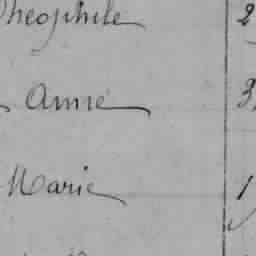 Théophile 2
Anne 3
Marie 1